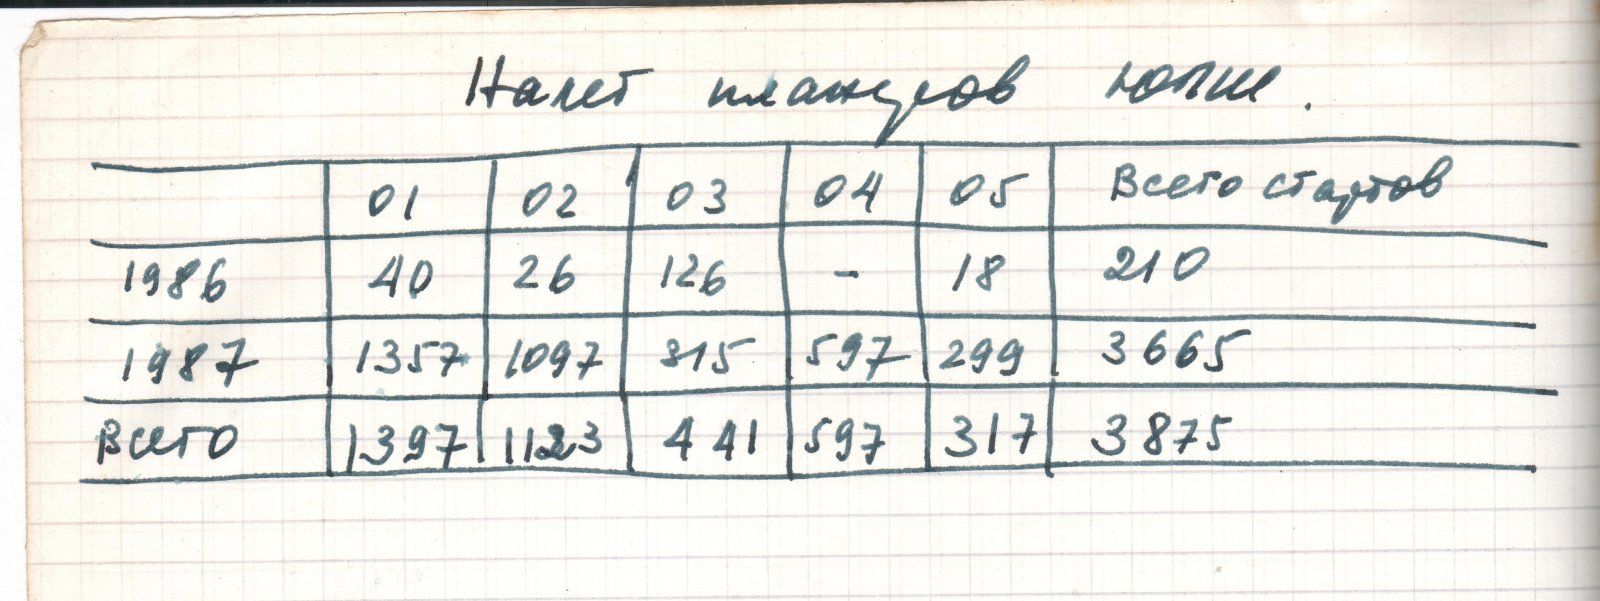 Налет планеров ЮПШ.
01 02 03 04 05 Всего стартов
1986 40 26 126 - 18 210
1987 1357 1097 315 597 299 3665
Всего 1397 1123 441 597 317 3875